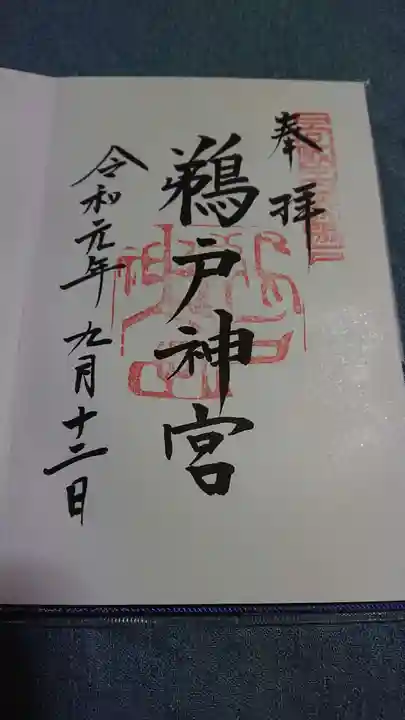 奉拝
鵜戸神宮
令和元年九月十二日